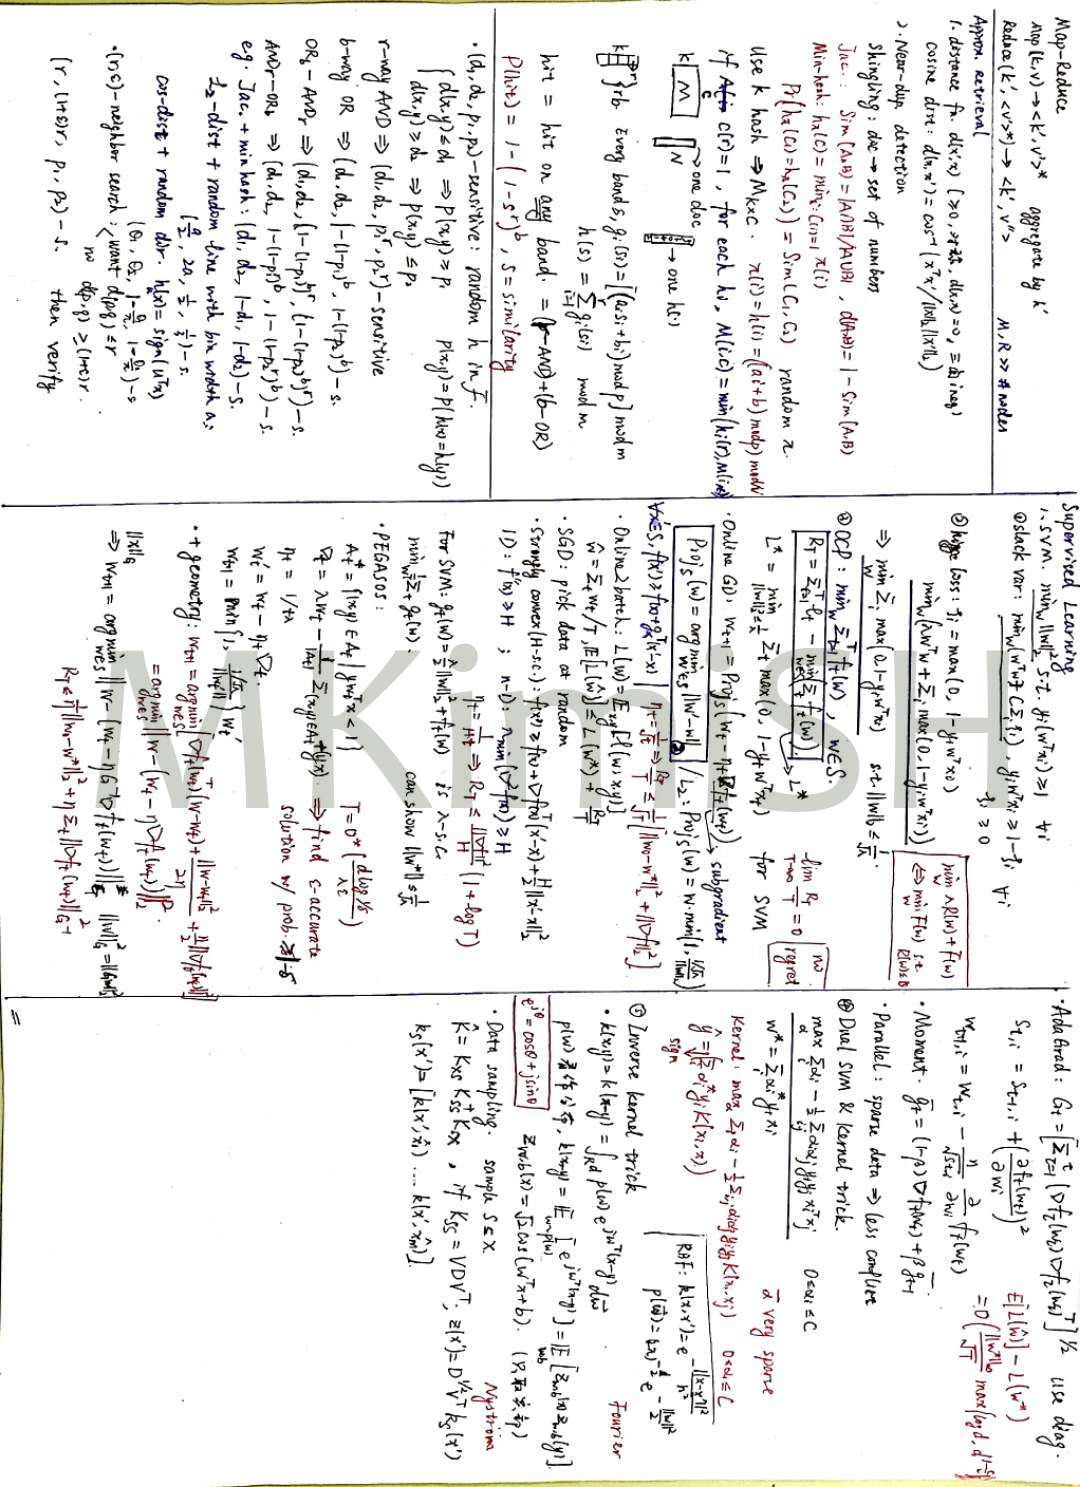 Map-Reduce
Map (k,v) → <k', v'>* aggregate by k'
Reduce(k', <v'>*) → <k', v''> M, R >> # nodes
Approx. Retrieval
1. distance fn. d(x',x) (≥0, 对称, d(x,x)=0, 三角 ineq)
cosine dist: d(x,x') = cos⁻¹(xᵀx'/||x||₂||x'||₂)
2. Near-dup. detection
Shingling: doc → set of numbers
Jac.: Sim(A,B) = |A∩B|/|A∪B| , d(A,B) = 1 - Sim(A,B)
Min-hash: hπ(C) = min i:C(i)=1 π(i)
Pr(hπ(C₁)=hπ(C₂)) = Sim(C₁,C₂) random π.
Use k hash ⇒ M K×C. π(i) = h(i) = ((ai+b) mod p) mod N
if C(r)=1, for each hi, M(i,c) = min(hi(r), M(i,c))
C → one doc
K M N → one h(·)
k } r } b. Every band s, gi(si) = [(ai si + bi) mod p] mod m
h(s) = Σ_{i=1}^r gi(si) mod m
hit = hit on any band. = (r-AND)+(b-OR)
P(hit) = 1 - (1-s^r)^b, s = similarity
· (d₁, d₂, p₁, p₂)-sensitive: random h in F.
d(x,y) ≤ d₁ ⇒ P(x,y) ≥ p₁ P(x,y) = P(h(x)=h(y))
d(x,y) ≥ d₂ ⇒ p(x,y) ≤ p₂
r-way AND ⇒ (d₁, d₂, p₁^r, p₂^r)-sensitive
b-way OR ⇒ (d₁, d₂, 1-(1-p₁)^b, 1-(1-p₂)^b)-s.
OR_b - AND_r ⇒ (d₁, d₂, (1-(1-p₁)^b)^r, (1-(1-p₂)^b)^r)-s.
AND_r-OR_b ⇒ (d₁, d₂, 1-(1-p₁^r)^b, 1-(1-p₂^r)^b)-s.
e.g. Jac. + min hash: (d₁, d₂, 1-d₁, 1-d₂)-s.
L₂-dist + random line with bin width a:
(a/2, 2a, 1/2, 1/3)-s.
cos-dist + random dir. h(x) = sign(uᵀx)
(θ₁, θ₂, 1-θ₁/π, 1-θ₂/π)-s
·(r,ε)-neighbor search: want d(p,q) ≤ r
no d(p,q) ≥ (1+ε)r.
(r, (1+ε)r, p₁, p₂)-s. then verify
Supervised Learning
1. SVM. min_w ||w||₂² s.t. yi(wᵀxi) ≥ 1 ∀i
① slack var: min_w (wᵀw + C Σi ξi), yi wᵀxi ≥ 1-ξi ∀i
ξi ≥ 0
② hinge loss: ξi = max(0, 1-yi wᵀxi)
min_w (λwᵀw + Σi max(0, 1-yi wᵀxi))
min_w λR(w) + F(w)
⇔ min_w F(w) s.t. R(w) ≤ B
⇒ min_w Σi max(0, 1-yi wᵀxi) s.t. ||w||₂ ≤ 1/√λ.
③ OCP: min_w Σ_{t=1}^T ft(w), w∈S.
R_T = Σ_{t=1}^T lt - min_{w∈S} (Σt ft(w)) → L*
lim_{T→∞} R_T/T = 0 no regret
L* = min_{||w||₂ ≤ 1/√λ} Σt max(0, 1-yt wᵀxt) for SVM
· Online GD: w_{t+1} = Proj_S(wt - ηt ∇ft(wt)). → subgradient
Proj_S(w) = arg min_{w'∈S} ||w'-w||₂ / L₂: Proj_S(w) = w·min(1, (1/√λ)/||w||₂)
∀x'∈S, f(x') ≥ f(x) + gₓᵀ(x'-x) | ηt = 1/√t ⇒ R_T/T ≤ 1/√T [||w₀-w*||₂² + ||∇f||₂²]
· Online2batch: L(w) = E_{x,y}[l(w; x,y)]
ŵ = Σt wt/T, E[L(ŵ)] ≤ L(w*) + R_T/T
· SGD: pick data at random
· Strongly convex (H-s.c.): f(x') ≥ f(x) + ∇f(x)ᵀ(x'-x) + H/2 ||x'-x||₂²
1D: f''(x) ≥ H ; n-D: λmin(∇²f(x)) ≥ H
ηt = 1/Ht ⇒ R_T ≤ ||∇f||²/H (1+log T)
For SVM: gt(w) = λ/2 ||w||₂² + ft(w) is λ-s.c.
min_w 1/T Σt gt(w). can show ||w*|| ≤ 1/√λ
· PEGASOS:
At⁺ = {(x,y) ∈ At | y wtᵀx < 1} T = O*(d log 1/δ / λε)
∇t = λwt - 1/|At| Σ_{(x,y)∈At⁺} (yx). ⇒ find ε-accurate
ηt = 1/tλ solution w/ prob. 1-δ
wt' = wt - ηt ∇t.
w_{t+1} = min{1, (1/√λ)/||wt'||} wt'
· + geometry: w_{t+1} = argmin_{w∈S} [∇ft(wt)ᵀ(w-wt) + ||w-wt||₂²/2η + η/2 ||∇ft(wt)||²]
= argmin_{w∈S} ||w-(wt-η∇ft(wt))||₂².
||x||_G
⇒ w_{t+1} = argmin_{w∈S} ||w-(wt-ηG⁻¹∇ft(wt))||_G² ||w||_G² = ||Gw||₂²
R_T ≤ 1/η ||w₀-w*||₂² + η Σt ||∇ft(wt)||²_{G⁻¹}
· AdaGrad: Gt = [Σ_{τ=1}^t (∇fτ(wτ)∇fτ(wτ)ᵀ]^{1/2} use diag.
S_{t,i} = S_{t-1,i} + (∂ft(wt)/∂wi)² E[L(ŵ)] - L(w*)
= O(||w*||∞/√T max(log d, d^{1-
w_{t+1,i} = w_{t,i} - η/√S_{t,i} ∂/∂wi ft(wt)
· Moment. ḡt = (1-β)∇ft(wt) + β ḡ_{t-1}
· Parallel: sparse data ⇒ less conflict
④ Dual SVM & Kernel trick.
max_α Σi αi - 1/2 Σij αiαj yiyj xiᵀxj 0≤αi≤C
w* = Σi αi* yi xi ᾱ very sparse
Kernel: max_α Σi αi - 1/2 Σi,j αiαj yiyj K(xi, xj) 0≤αi≤C
ŷ = (Σi αi* yi K(xi, x))
sign
RBF: k(x,x') = e^{-||x-x'||²/h²}
p(w̄) = (2π)^{-d/2} e^{-||w||²/2}
⑤ Inverse kernel trick Fourier
· k(x,y) = k(x-y) = ∫_{R^d} p(w) e^{jwᵀ(x-y)} dw̄
p(w) 看作分布, k(x-y) = E_{w~p(w)}[e^{jwᵀ(x-y)}] = E_{w,b}[z_{w,b}(x) z_{w,b}(y)].
e^{jθ} = cosθ + j sinθ z_{w,b}(x) = √2 cos(wᵀx+b). (只取实部)
· Data sampling. sample S ⊆ X Nyström
K̂ = K_{XS} K_{SS}⁺ K_{SX}, if K_{SS} = VDVᵀ; z(x') = D^{-1/2} Vᵀ k_S(x')
k_S(x') = [k(x', x̂₁) .... k(x', x̂m)].
MKimiSH